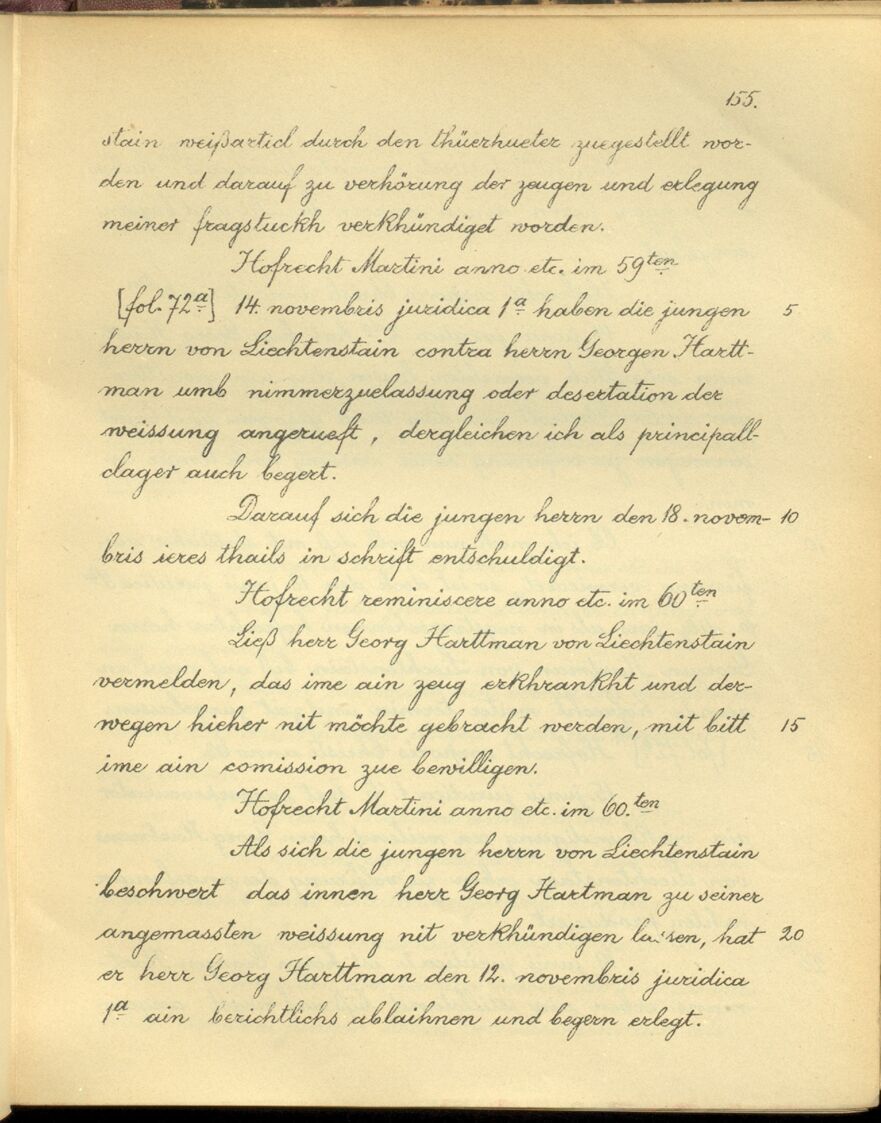 155.
stain weißarticl durch den thüerhueter zuegestellt wor-
den und darauf zu verhörung der zeugen und erlegung
meiner fragstuckh verkhündiget worden.
Hofrecht Martini anno etc. im 59ten
[fol. 72a] 14. novembris juridica 1a haben die jungen 5
herrn von Liechtenstain contra herrn Georgen Hartt-
man umb nimmerzuelassung oder desertation der
weissung angerueft, dergleichen ich als principall-
clager auch begert.
Darauf sich die jungen herrn den 18. novem- 10
bris ieres thails in schrift entschuldigt.
Hofrecht reminiscere anno etc. im 60ten
Ließ herr Georg Harttman von Liechtenstain
vermelden, das ime ain zeug erkhrankht und der-
wegen hieher nit möchte gebracht werden, mit bitt 15
ime ain comission zue bewilligen.
Hofrecht Martini anno etc. im 60.ten
Als sich die jungen herrn von Liechtenstain
beschwert das innen herr Georg Hartman zu seiner
angemassten weissung nit verkhündigen lassen, hat 20
er herr Georg Harttman den 12. novembris juridica
1a ain berichtlichs ablaihnen und begern erlegt.